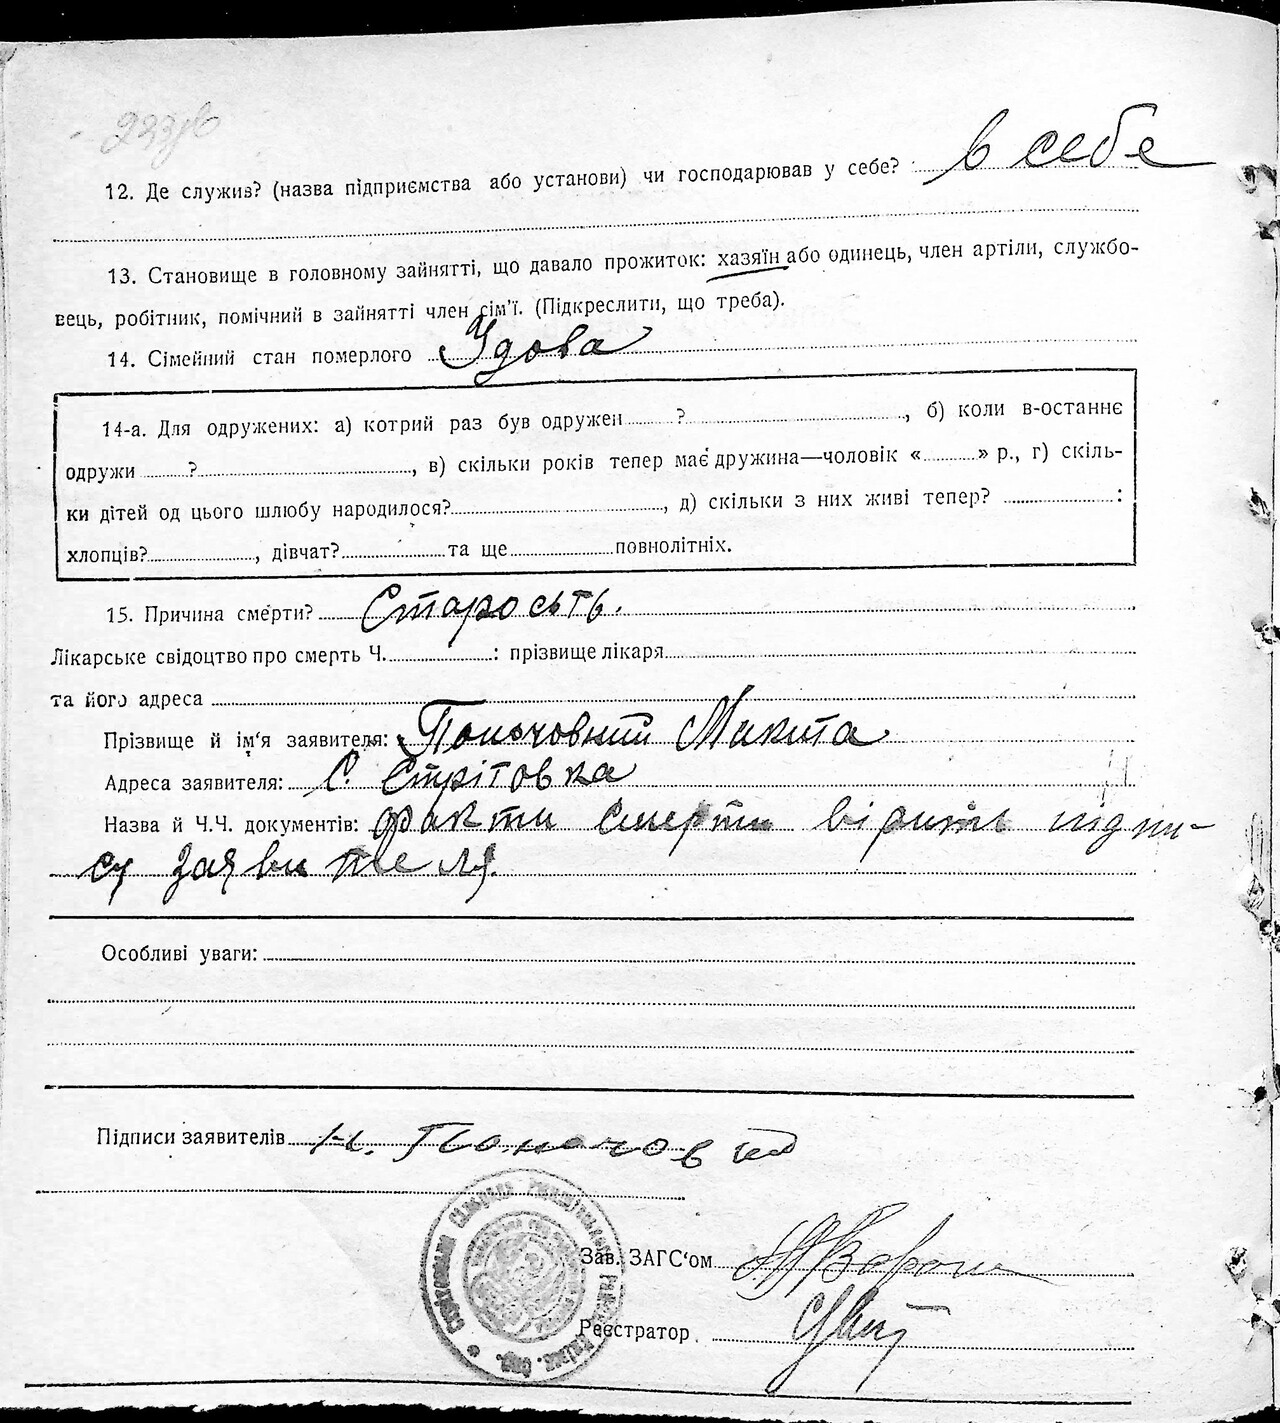 223зв
12. Де служив? (назва підприємства або установи) чи господарював у себе? в себе
13. Становище в головному зайнятті, що давало прожиток: хазяїн або одинець, член артіли, службо-
вець, робітник, помічний в зайнятті член сім'ї. (Підкреслити, що треба).
14. Сімейний стан померлого Удова
14-а. Для одружених: а) котрий раз був одружен ? , б) коли в-останнє
одружи ? , в) скільки років тепер має дружина—чоловік « » р., г) скіль-
ки дітей од цього шлюбу народилося? , д) скільки з них живі тепер? :
хлопців? , дівчат? та ще повнолітніх.
15. Причина смерти? Старость.
Лікарське свідоцтво про смерть Ч. : прізвище лікаря
та його адреса
Прізвище й ім'я заявителя: Микита
Адреса заявителя: С. Стрітовка
Назва й Ч.Ч. документів: факти смерти вірить підпи-
су заявителя.
Особливі уваги:
Підписи заявителів
Зав. ЗАГС'ом
Реєстратор